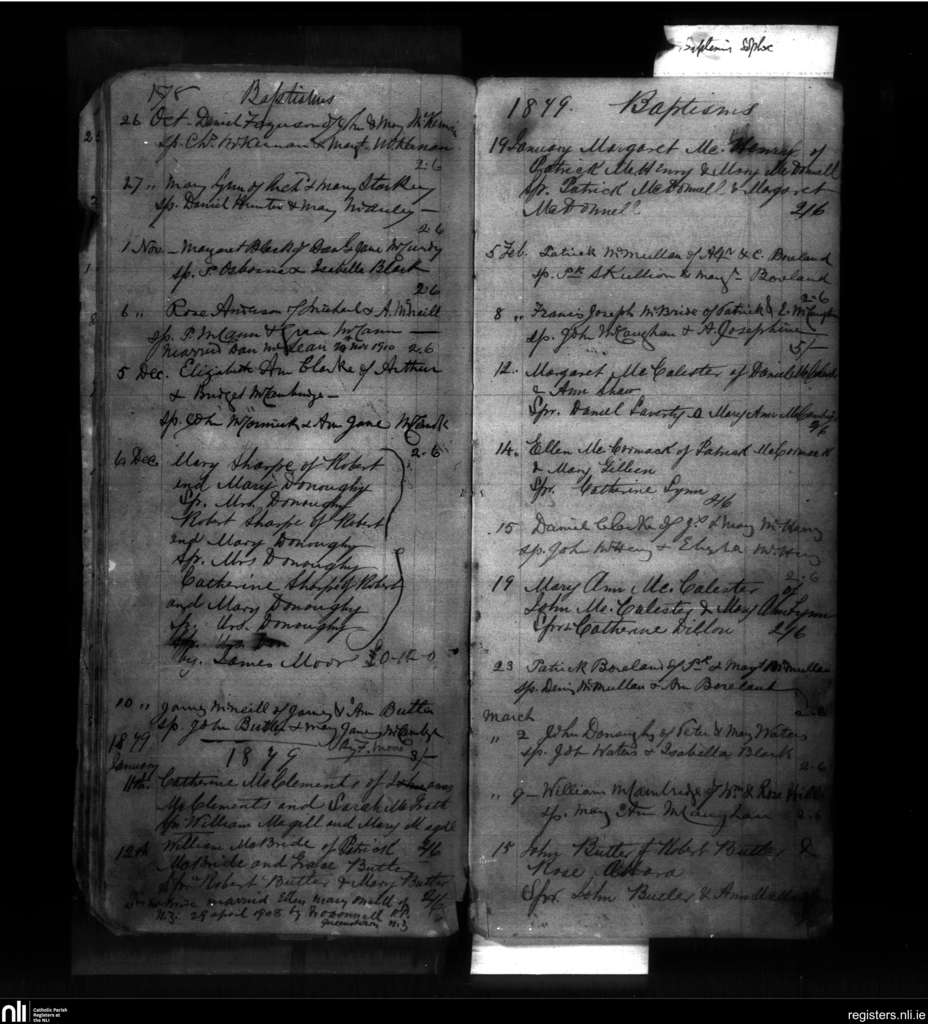 Baptisms
1878 Baptisms
26 Oct. Daniel Ferguson of John & Mary McKernan
sp. Chs. McKernan & Margt. McKernan
2.6
27 " Mary Lynn of Archd. & Mary Starkey
sp. Daniel Hunter & Mary McAuley —
2.6
1 Nov. — Margaret Black of Dan & Jane McCurdy
sp. P. Osborne & Isabella Black
2.6
6 " Rose Anderson of Michael & A. McNeill
sp. P. McCann & McCann —
Married Dan McLean Nov 1910 2.6
5 Dec. Elizabeth Ann Clarke of Arthur
& Bridget McCambridge —
sp. John McCormick & Ann Jane
2.6
6 Dec. Mary Sharpe of Robert
and Mary Donoughy
Sp. Mrs. Donoughy
Robert Sharpe of Robert
and Mary Donoughy
Sp. Mrs Donoughy
Catherine Sharpe of Robert
and Mary Donoughy
Sp. Mrs. Donoughy
by. James Moor £0-12-0
10 " James McNeill of James & Ann Butler
sp. John Butler & Mary Jane McCambridge
by J. Moor 3/-
1879 1879
January
11th. Catherine McClements of
McClements and Sarah McGrath
Spr William Magill and Mary Magill
12th William McBride of Patrick 2/6
McBride and Grace Butler
Sprs Robert Butler & Mary Butler
2/6
married Ellen Mary Smith of
N.Z. 29 April 1908 by P.P.
N.Z
1879. Baptisms
19 January Margaret Mc. Henry of
Patrick McHenry & Mary McDonnell
Sp. Patrick McDonnell & Magaret
McDonnell 2/6
5 Feb. Patrick McMullan of & C. Boreland
sp. Pk. Skullion & Margt. Boreland
2.6
8 " Francis Joseph McBride of Patrick & E. McCaughan
sp. John McCaughan & A. Josephine
5/-
12. Margaret McCalester of Daniel McCalester
& Ann Shaw
Spr. Daniel Laverty & Mary Ann McCambridge
2/6
14. Ellen McCormack of Patrick McCormack
& Mary Gillan
Spr. Catherine Lynn
2/6
15 Daniel Clarke of & Mary McHenry
sp. John McHenry & McHenry
2.6
19 Mary Ann Mc. Calester of
John Mc. Calester & Mary Ann Lynn
Sprs Catherine Dillon 2/6
23 Patrick Boreland of Pk. & Margt. McMullan
sp. Denis McMullan & Ann Boreland
2.6
March
" 2 John Donoughy of Peter & Mary Waters
sp. John Waters & Isabella Black
2.6
" 9 — William McCambridge of Wm & Rose
sp. Mary Ann McCaughan 2.6
15 John Butler of Robert Butler &
Rose O'Hara
Spr. John Butler & Ann
nli Catholic Parish
Registers at
the NLI
registers.nli.ie